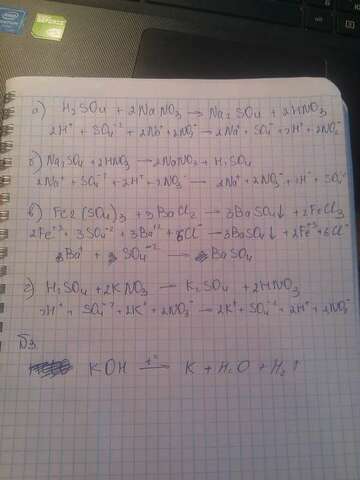 intel
GEFORCE
а) H₂SO₄ + 2NaNO₃ → Na₂SO₄ + 2HNO₃
2H⁺ + SO₄⁻² + 2Na⁺ + 2NO₃⁻ → 2Na⁺ + SO₄⁻ + 2H⁺ + 2NO₃⁻
б) Na₂SO₄ + 2HNO₃ → 2NaNO₃ + H₂SO₄
2Na⁺ + SO₄⁻² + 2H⁺ + 2NO₃⁻ → 2Na⁺ + 2NO₃⁻ + 2H⁺ + SO₄⁻²
в) Fe2(SO₄)₃ + 3BaCl₂ → 3BaSO₄↓ + 2FeCl₃
2Fe⁺³ + 3SO₄⁻² + 3Ba⁺² + 6Cl⁻ → 3BaSO₄↓ + 2Fe⁺³ + 6Cl⁻
Ba⁺ + SO₄⁻² → BaSO₄
г) H₂SO₄ + 2KNO₃ → K₂SO₄ + 2HNO₃
2H⁺ + SO₄⁻² + 2K⁺ + 2NO₃⁻ → 2K⁺ + SO₄⁻² + 2H⁺ + 2NO₃⁻
KOH → K + H₂O + H₂↑